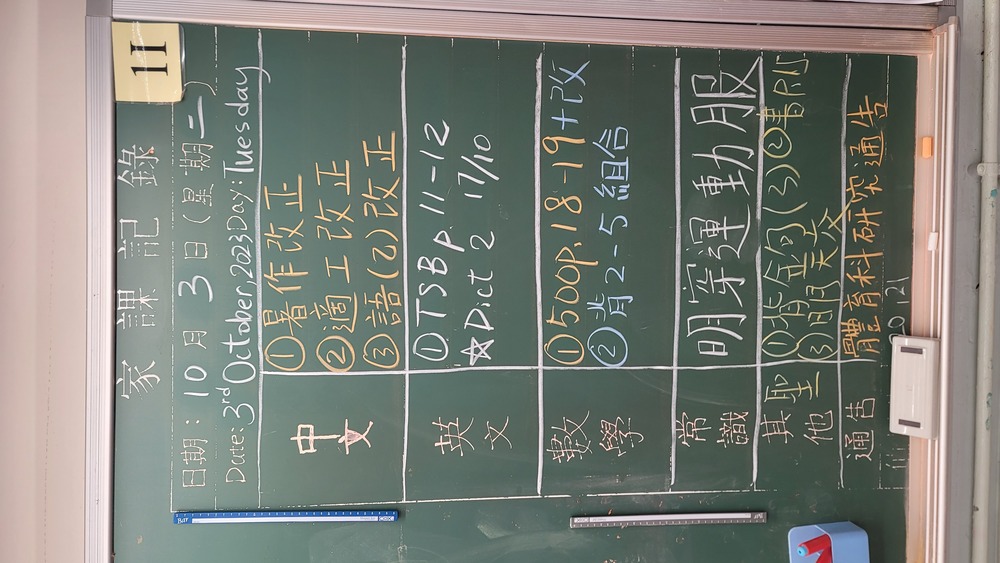 家課記錄
11
日期：10月3日（星期二）
Date: 3rd October, 2023 Day: Tuesday
中文
①暑作改正
②適工改正
③語(乙)改正
英文
①TSB p.11-12
☆Dict 2 17/10
數學
①500 p.18-19+改
②背2-5組合
常識
明穿運動服
其他
聖
①背金句(3)②書P.15
通告
體育科研究通告